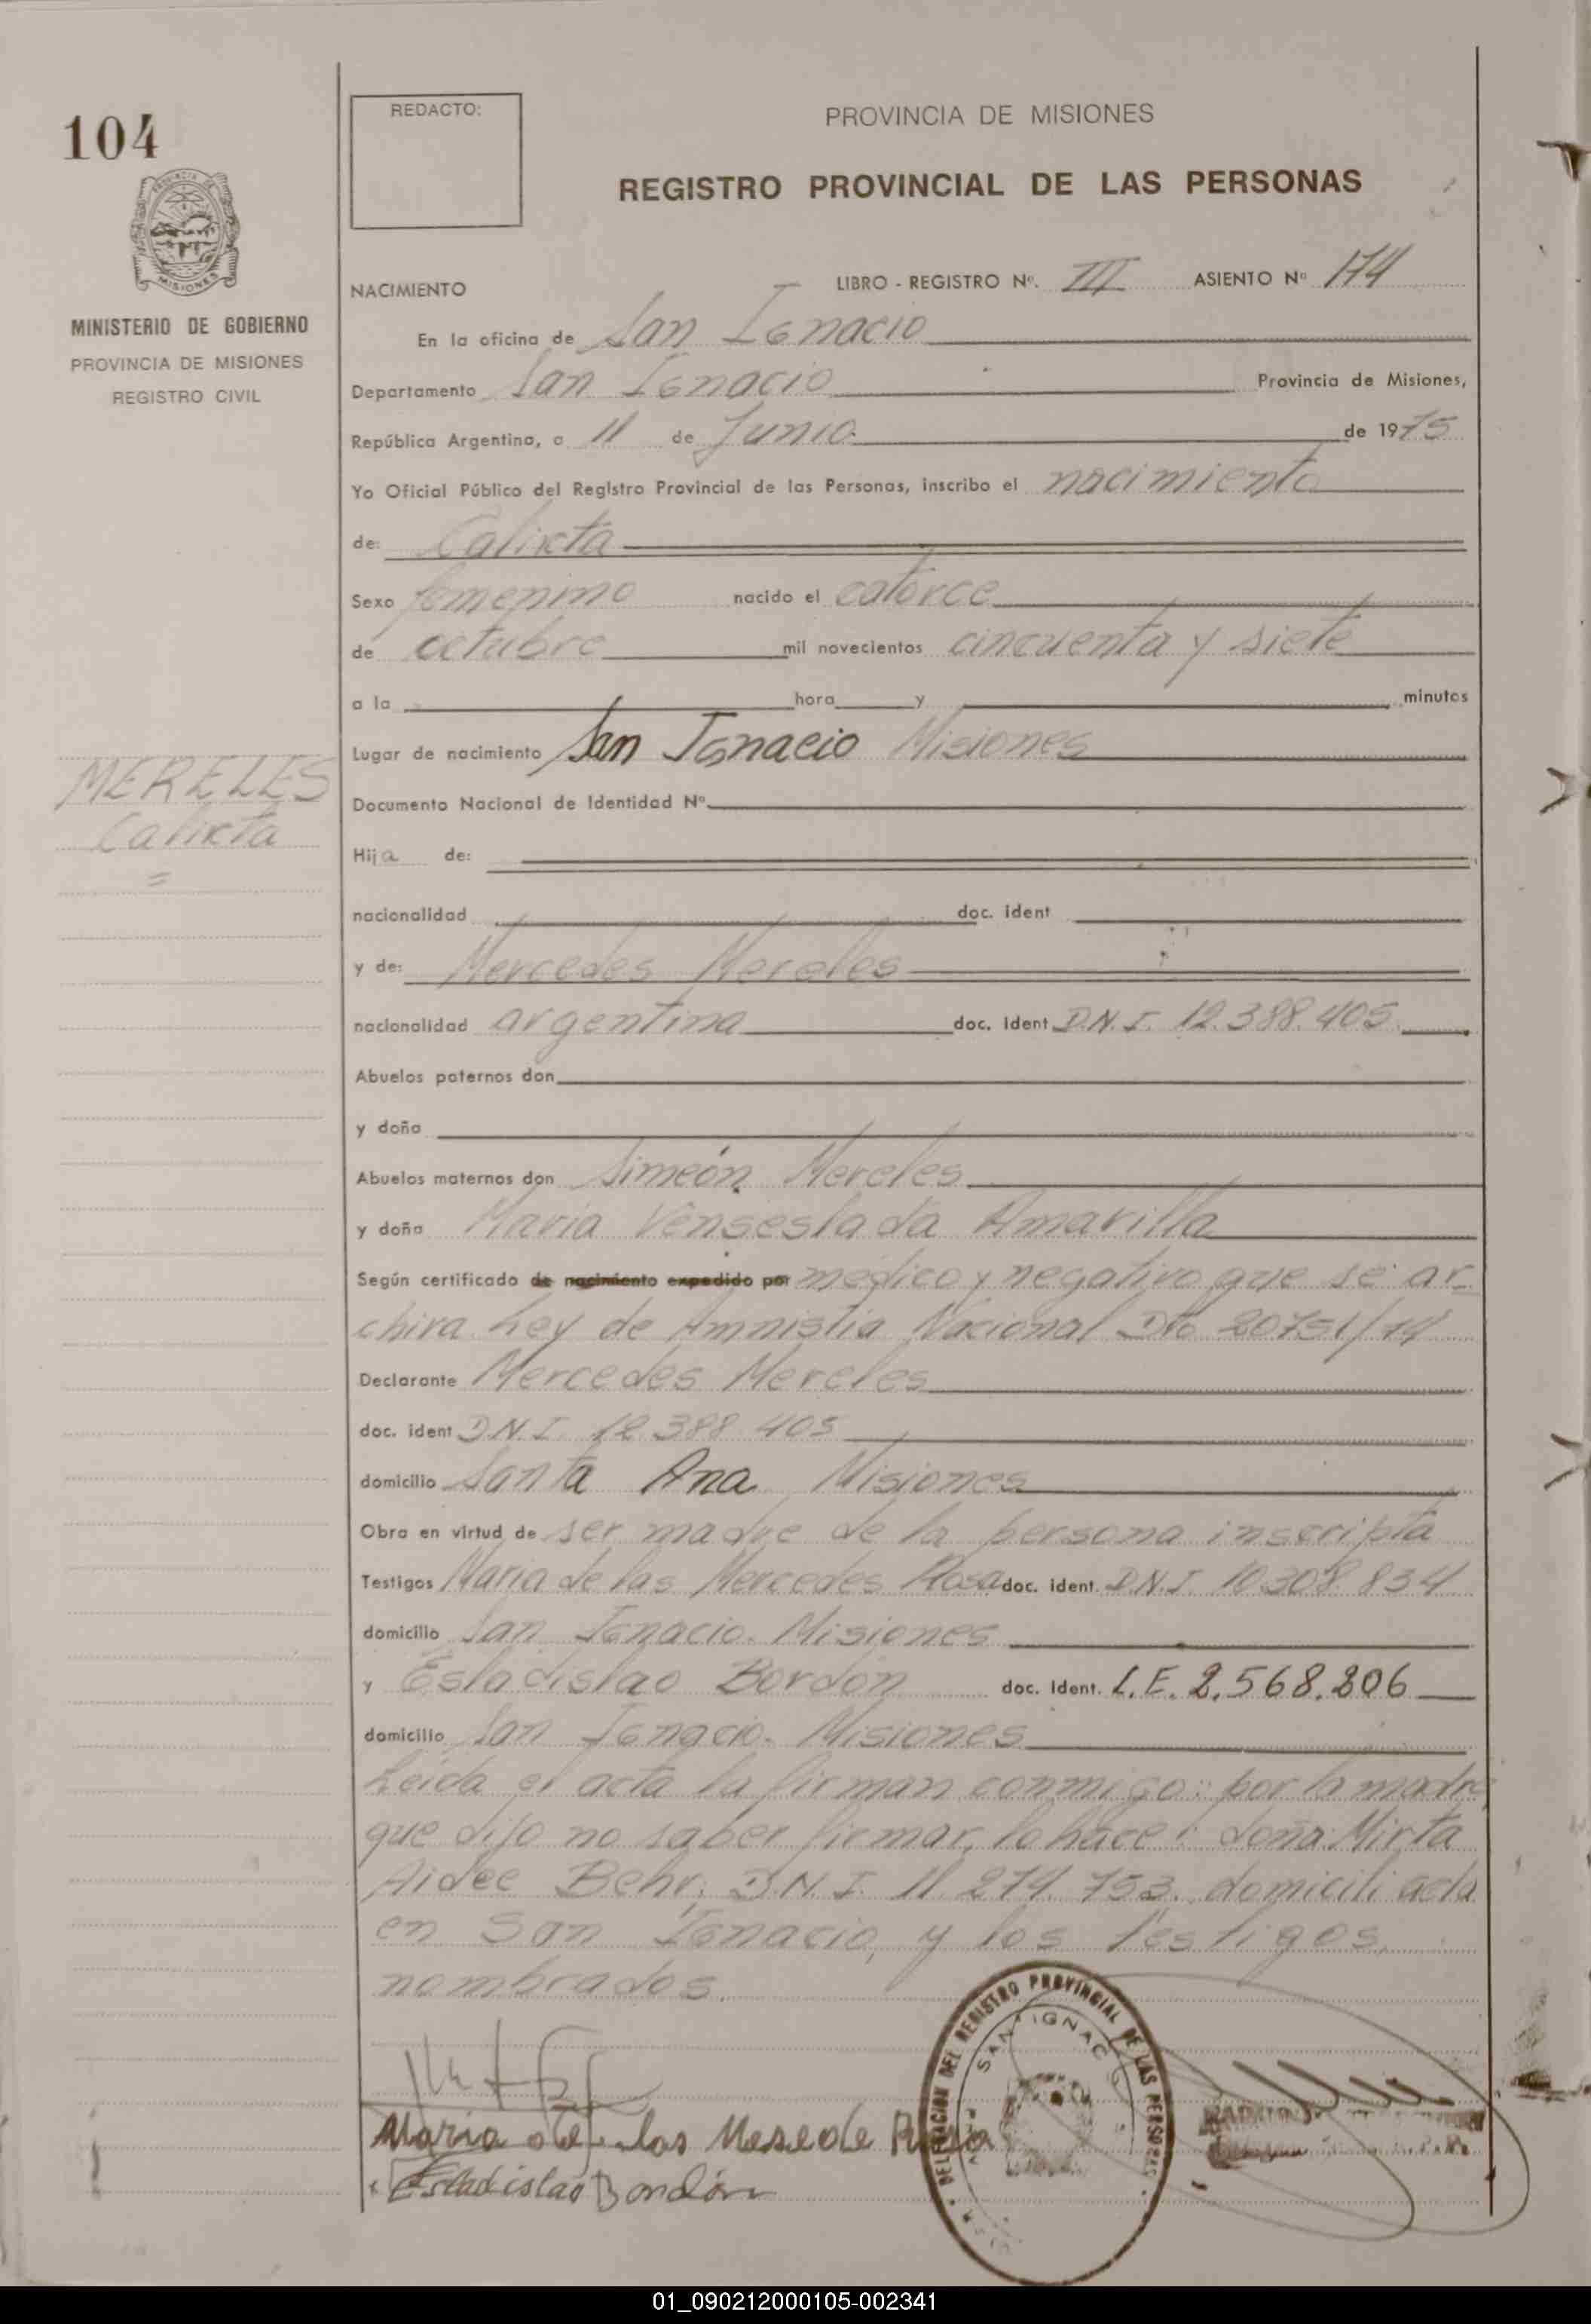 104
REDACTO:
PROVINCIA DE MISIONES
REGISTRO PROVINCIAL DE LAS PERSONAS
MISIONES
MINISTERIO DE GOBIERNO
PROVINCIA DE MISIONES
REGISTRO CIVIL
NACIMIENTO
LIBRO - REGISTRO Nº. III ASIENTO Nº 174
En la oficina de San Ignacio
Departamento San Ignacio Provincia de Misiones,
República Argentina, a 11 de Junio de 1975
Yo Oficial Público del Registro Provincial de las Personas, inscribo el nacimiento
de: Calixta
Sexo femenino nacido el catorce
de octubre mil novecientos cincuenta y siete
a la hora y minutos
Lugar de nacimiento San Ignacio Misiones
MERELES
Calixta
Documento Nacional de Identidad Nº
Hija de:
nacionalidad doc. ident
y de: Mercedes Mereles
nacionalidad argentina doc. Ident D.N.I. 12.388.405
Abuelos paternos don
y doña
Abuelos maternos don Simeón Mereles
y doña María Venseslada Amarilla
Según certificado de nacimiento expedido por medico y negativo que se ar-
chiva Ley de Amnistia Nacional Dto 20751/74
Declarante Mercedes Mereles
doc. ident D.N.I. 12.388.405
domicilio Santa Ana Misiones
Obra en virtud de ser madre de la persona inscripta
Testigos Maria de las Mercedes Rosa doc. ident. D.N.I. 10.308.834
domicilio San Ignacio. Misiones
y Esladislao Bordón doc. Ident. L.E. 2.568.206
domicilio San Ignacio. Misiones
Leída el acta la firman conmigo: por la madre
que dijo no saber firmar, lo hace: doña Mirta
Aidee Behr, D.N.I. 11.274.753. domiciliada
en San Ignacio, y los testigos
nombrados.
Maria de las Mesede Rosa
Esladislao Bordón
DELEGACION DEL REGISTRO PROVINCIAL DE LAS PERSONAS
SAN IGNACIO
01_090212000105-002341